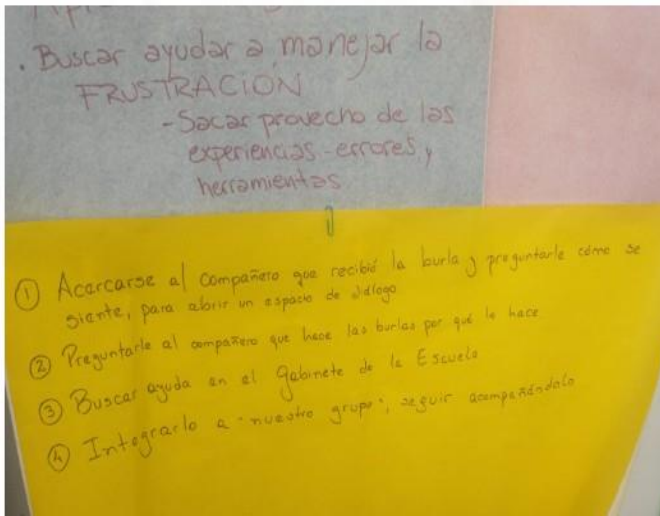 . Buscar ayudar a manejar la
FRUSTRACIÓN
- Sacar provecho de las
experiencias - errores y
herramientas
① Acercarse al compañero que recibió la burla y preguntarle cómo se
siente, para abrir un espacio de diálogo
② Preguntarle al compañero que hace las burlas por qué lo hace
③ Buscar ayuda en el Gabinete de la Escuela
④ Integrarlo a "nuestro grupo", seguir acompañándolo